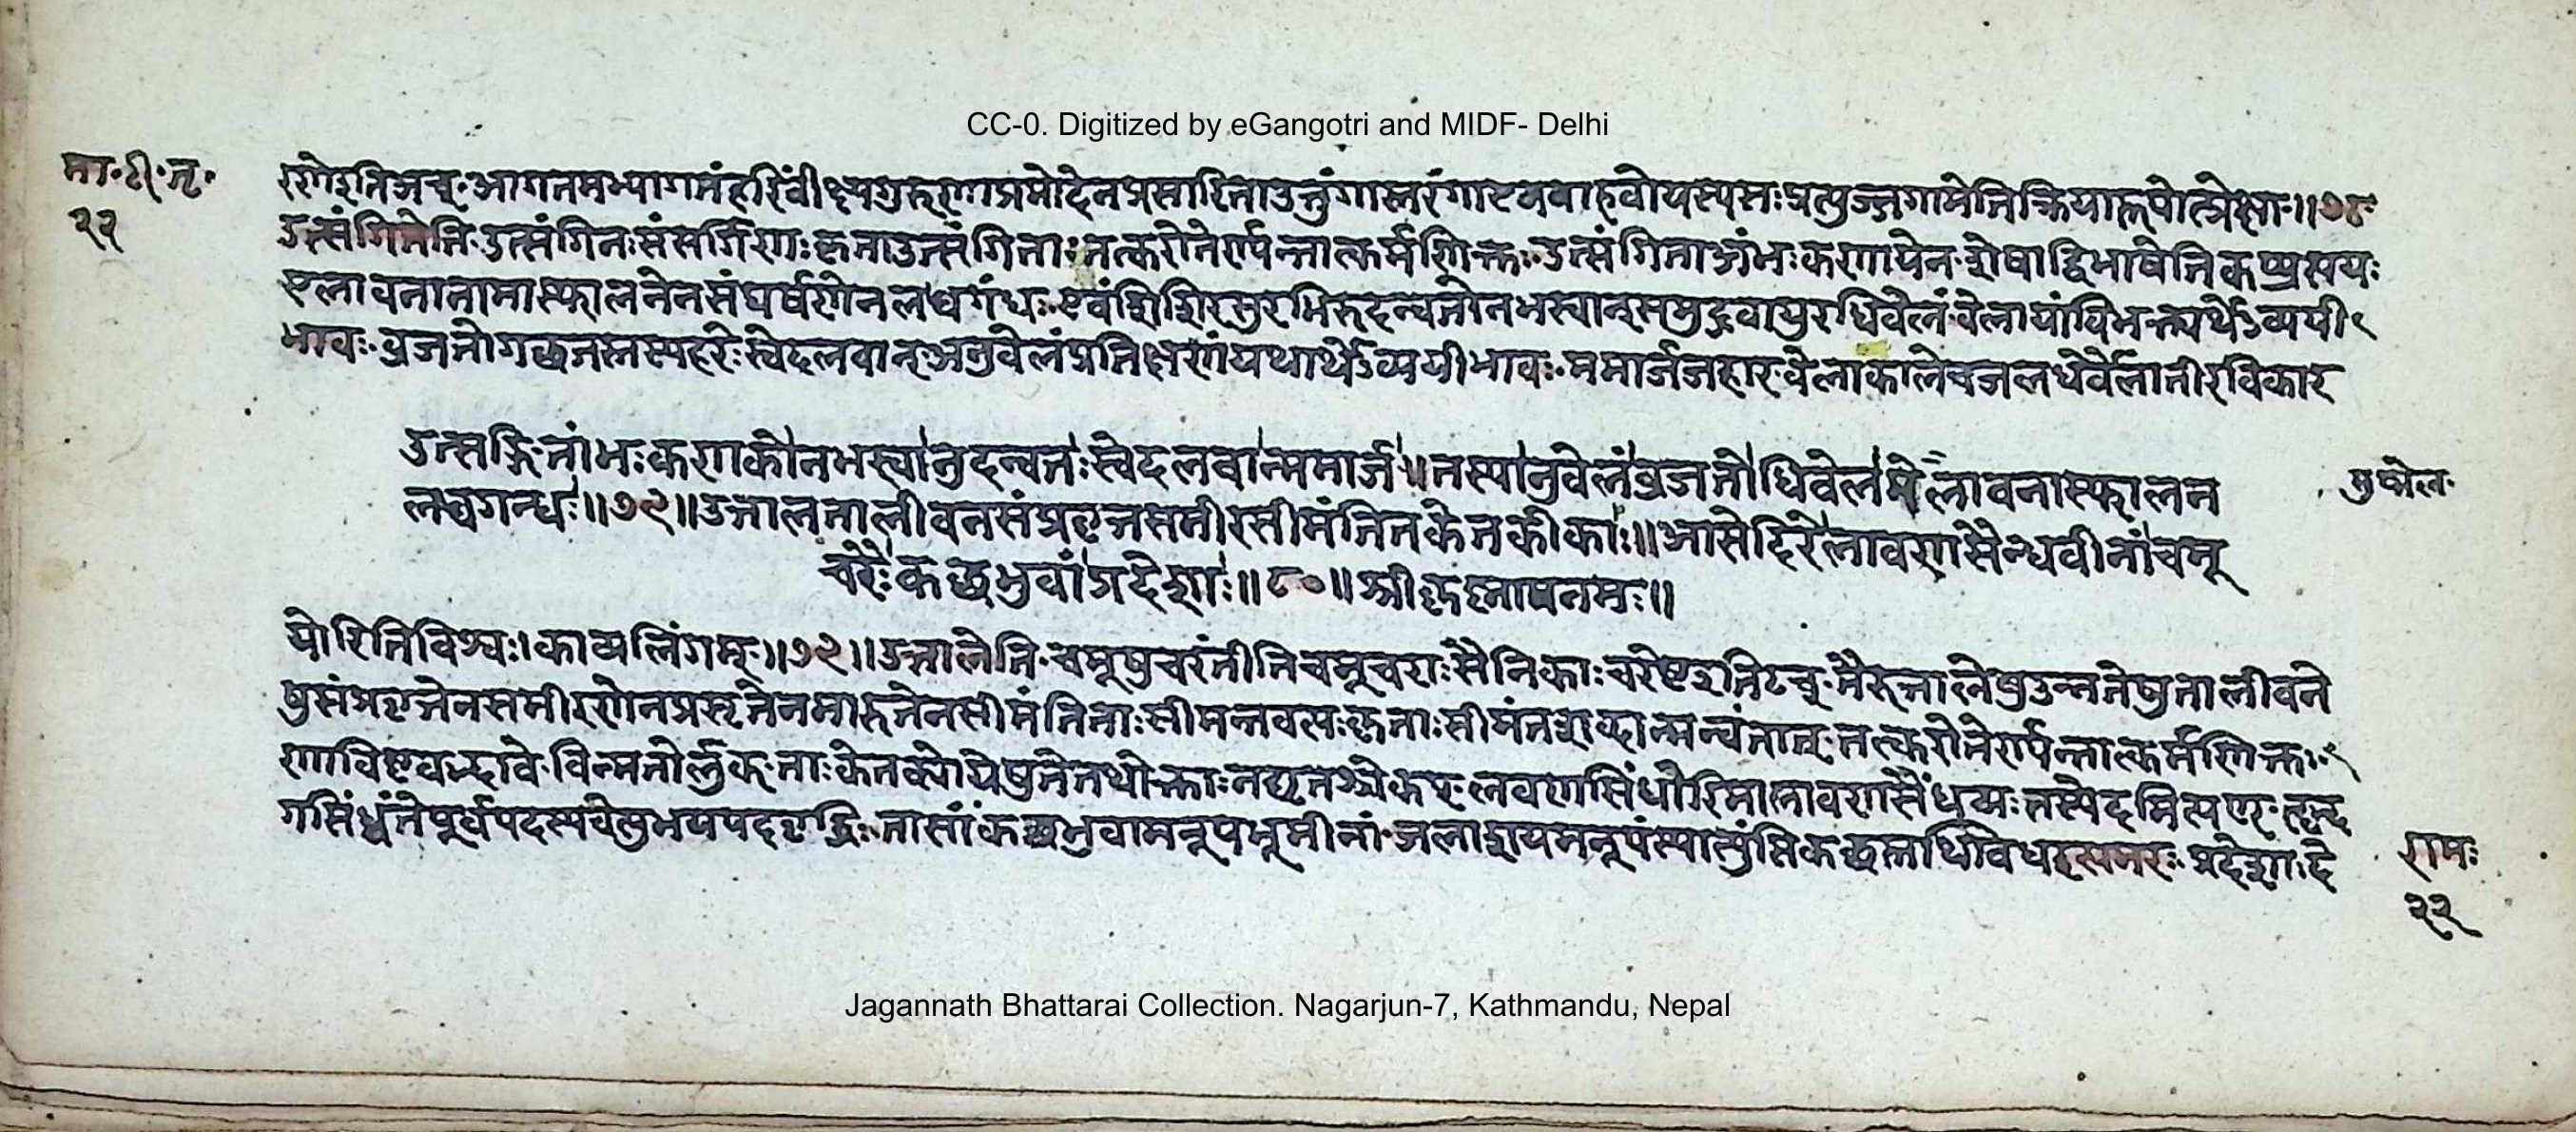 CC-0. Digitized by eGangotri and MIDF- Delhi
मा॰टी॰तृ॰
२२
रगेइतिअच्॰आगतमभ्यागमंहरिंवीक्ष्यगुरुणाप्रमोदेनप्रसारिताउत्तुंगास्तरंगाएवबाहवोयस्यसःप्रत्युज्जगामेतिक्रियारूपोत्प्रेक्षा॰॥७८
उत्संगितेति॰उत्संगिनःसंसर्गिणःकृताउत्संगिताः॰तत्करोतेर्ण्यन्तात्कर्मणिक्तः॰उत्संगिताअंभःकणायेन॰शेषाद्विभाषेतिकप्प्रत्ययः
एलावनानामास्फालनेनसंघर्षणेनलब्धगंधः॰एवंशिशिरसुरभिरुदन्वतोनभस्वान्समुद्रवायुरधिवेलं॰वेलायांविभक्त्यर्थेऽव्ययी
भावः॰व्रजतोगच्छतस्तस्यहरेःस्वेदलवान्॰अनुवेलंप्रतिक्षणंयथार्थेऽव्ययीभावः॰ममार्जजहार॰वेलाकालेचजलधेर्वेलातीरविकार
उत्सङ्गितांभःकणकोनभस्वानुदन्वतःस्वेदलवान्ममार्ज॥तस्यानुवेलंव्रजतोधिवेलमेलावनास्फालन
लब्धगन्धः॥७९॥उत्तालतालीवनसंप्रवृत्तसमीरसीमंतितकेतकीकाः॥आसेदिरेलावणसैन्धवीनांचमू
चरैःकच्छभुवांप्रदेशाः॥८०॥श्रीकृष्णायनमः॥
योरितिविश्वः।काव्यलिंगम्॰॥७९॥उत्तालेति॰चमूषुचरंतीतिचमूचराःसैनिकाःचरेष्टइतिटच्॰तैरुत्तालेषुउन्नतेषुतालीवने
षुसंप्रवृत्तेनसमीरणेनप्रसृतेनमारुतेनसीमंतिताःसीमन्तवत्यःकृताःसीमंतशब्दान्मत्वंतात्॰तत्करोतेर्ण्यन्तात्कर्मणिक्तः॰
णाविष्टवद्भावे॰विन्मतोर्लुक्॰ताःकेतक्योयेषुतेतथोक्ताःनद्यृतश्चेतिकप्॰लवणसिंधोरिमालावणसैंधव्यःतस्येदमित्यण्॰हृद्भ
गसिंध्वंतेपूर्वपदस्यचेत्युभयपदवृद्धिः॰तासांकच्छभुवामनूपभूमीनां॰जलाशयमनूपंस्यात्पुंसिकच्छस्तथाविधइत्यमरः॰प्रदेशादे
रामः
२२
Jagannath Bhattarai Collection. Nagarjun-7, Kathmandu, Nepal